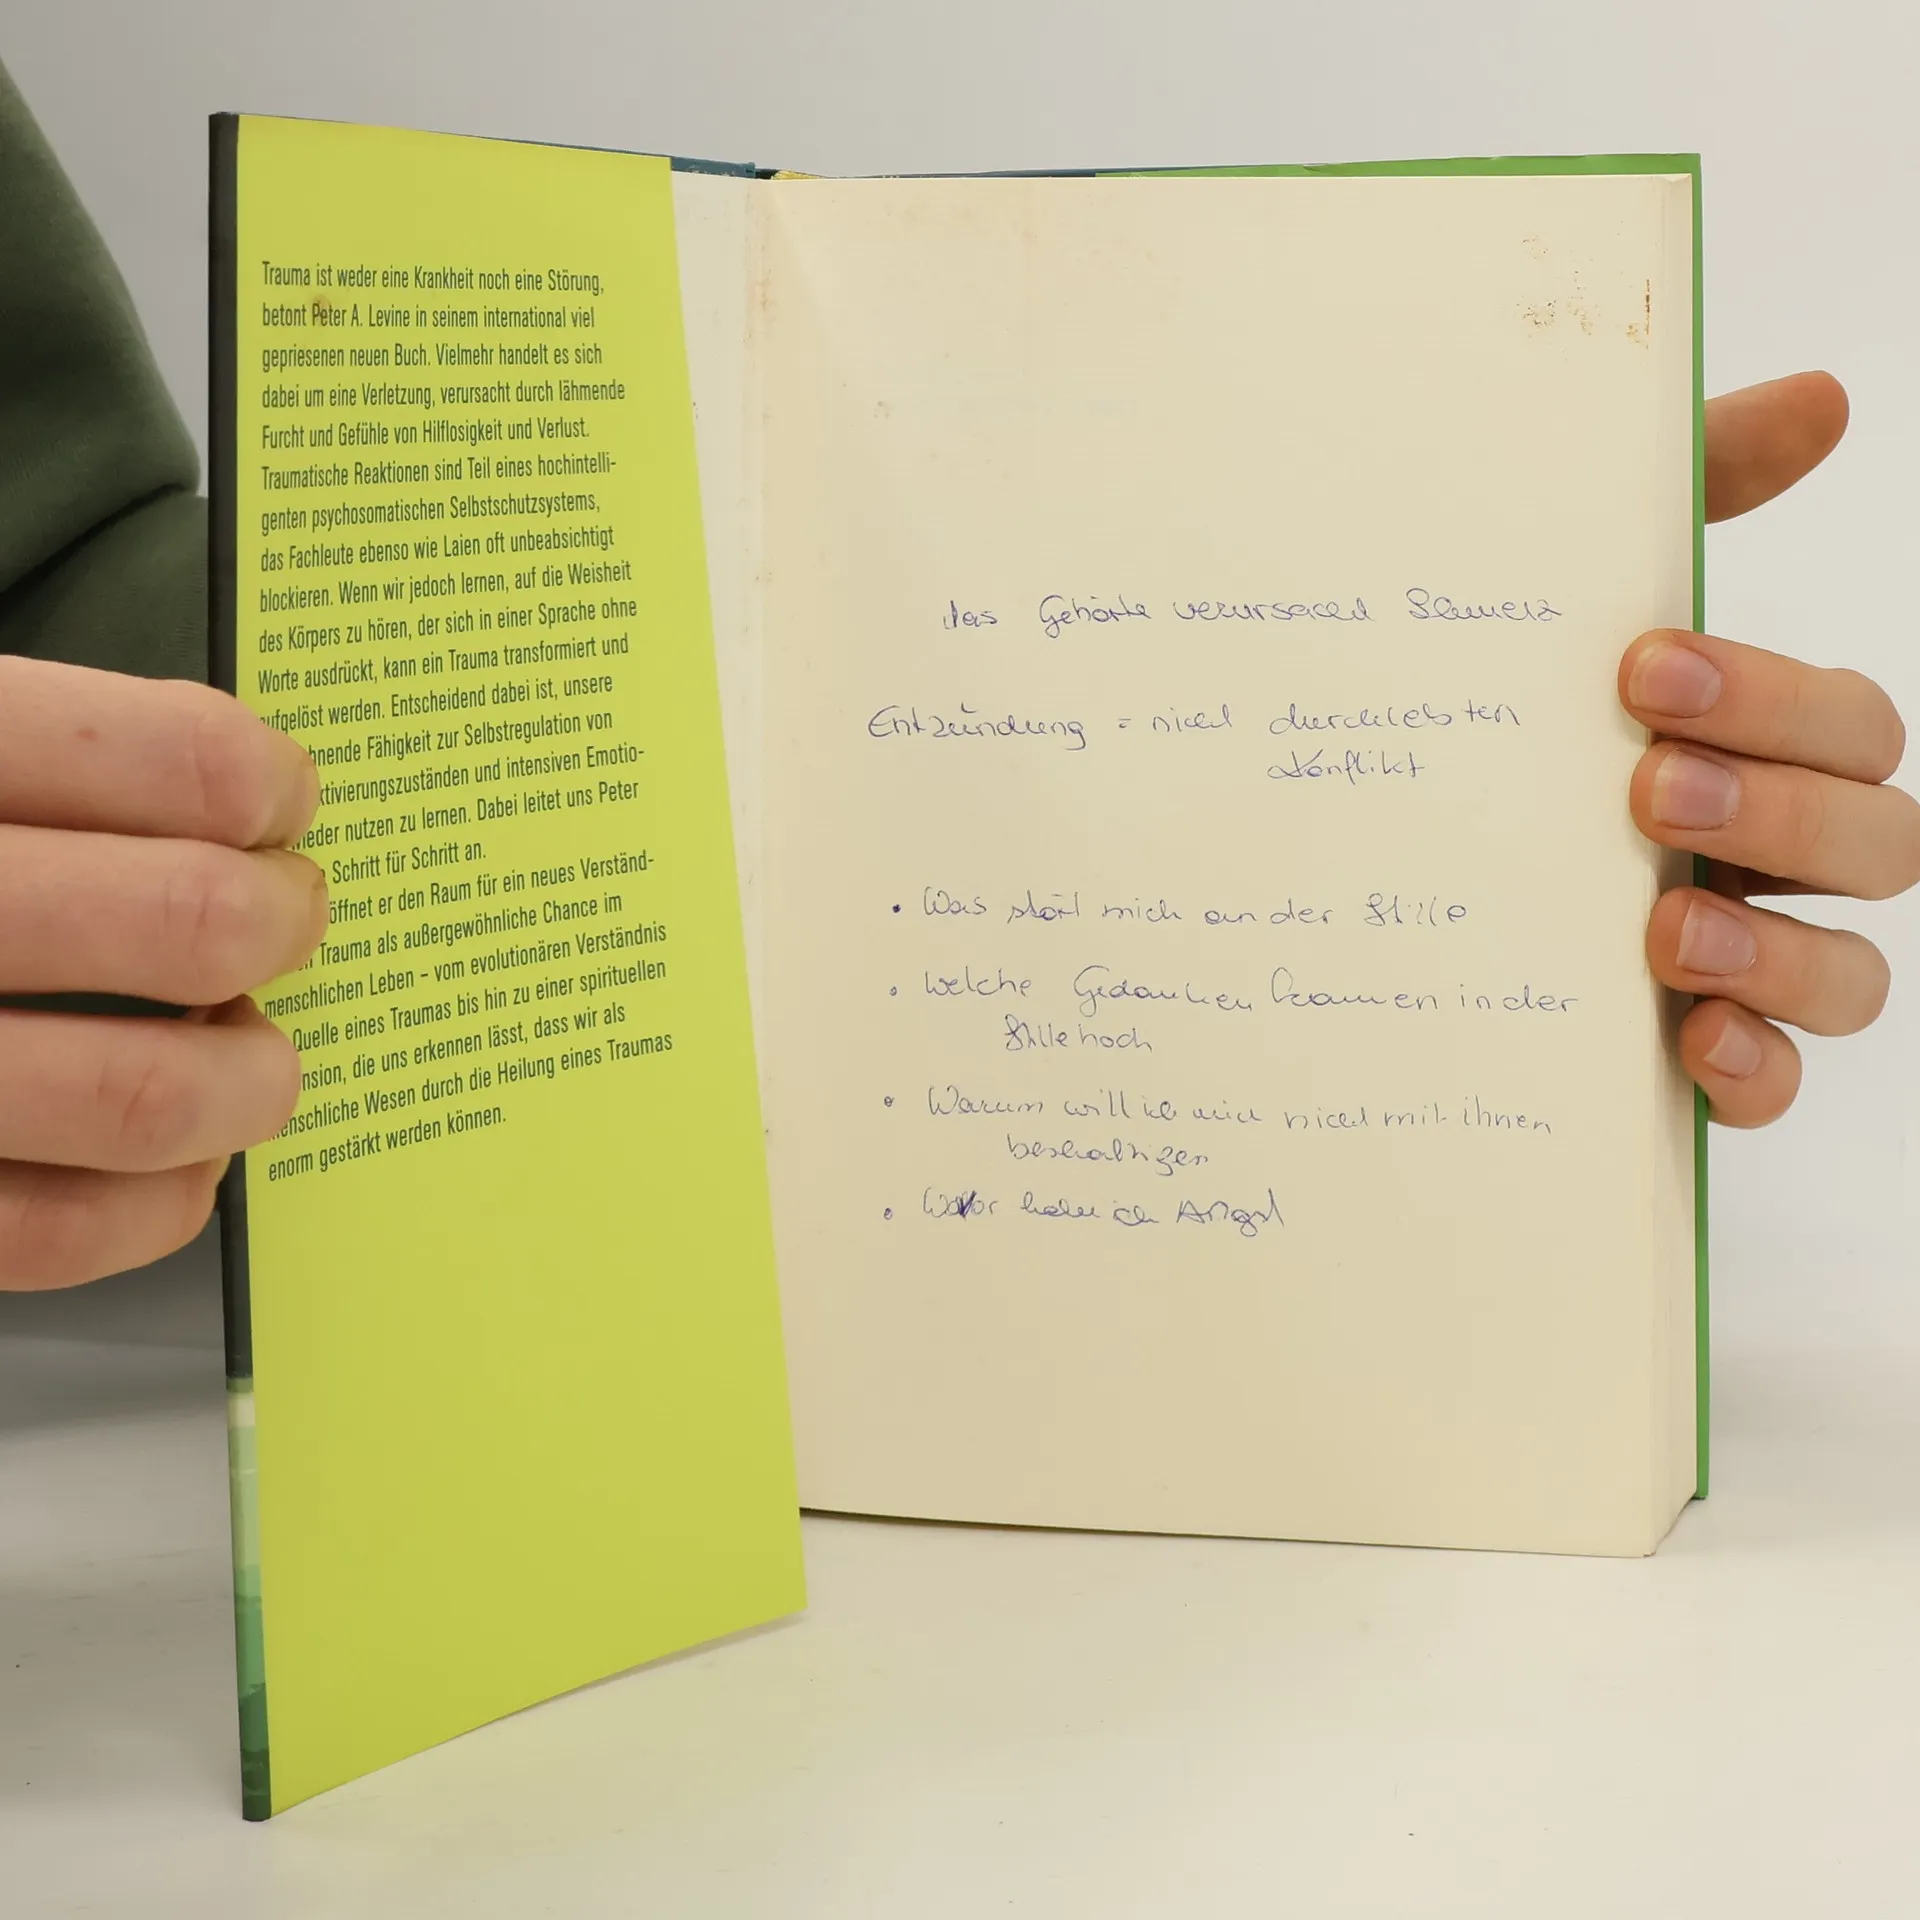 Trauma ist weder eine Krankheit noch eine Störung,
betont Peter A. Levine in seinem international viel
gepriesenen neuen Buch. Vielmehr handelt es sich
dabei um eine Verletzung, verursacht durch lähmende
Furcht und Gefühle von Hilflosigkeit und Verlust.
Traumatische Reaktionen sind Teil eines hochintelli-
genten psychosomatischen Selbstschutzsystems,
das Fachleute ebenso wie Laien oft unbeabsichtigt
blockieren. Wenn wir jedoch lernen, auf die Weisheit
des Körpers zu hören, der sich in einer Sprache ohne
Worte ausdrückt, kann ein Trauma transformiert und
ufgelöst werden. Entscheidend dabei ist, unsere
hnende Fähigkeit zur Selbstregulation von
ktivierungszuständen und intensiven Emotio-
ieder nutzen zu lernen. Dabei leitet uns Peter
Schritt für Schritt an.
öffnet er den Raum für ein neues Verständ-
Trauma als außergewöhnliche Chance im
menschlichen Leben – vom evolutionären Verständnis
Quelle eines Traumas bis hin zu einer spirituellen
nsion, die uns erkennen lässt, dass wir als
enschliche Wesen durch die Heilung eines Traumas
enorm gestärkt werden können.
das Gehörte verursacht Schmerz
Entzündung = nicht durchlebten
Konflikt
• Was stört mich an der Stille
• Welche Gedanken kommen in der
Stille hoch
• Warum will ich mich nicht mit ihnen
beschäftigen
• Wovor habe ich Angst